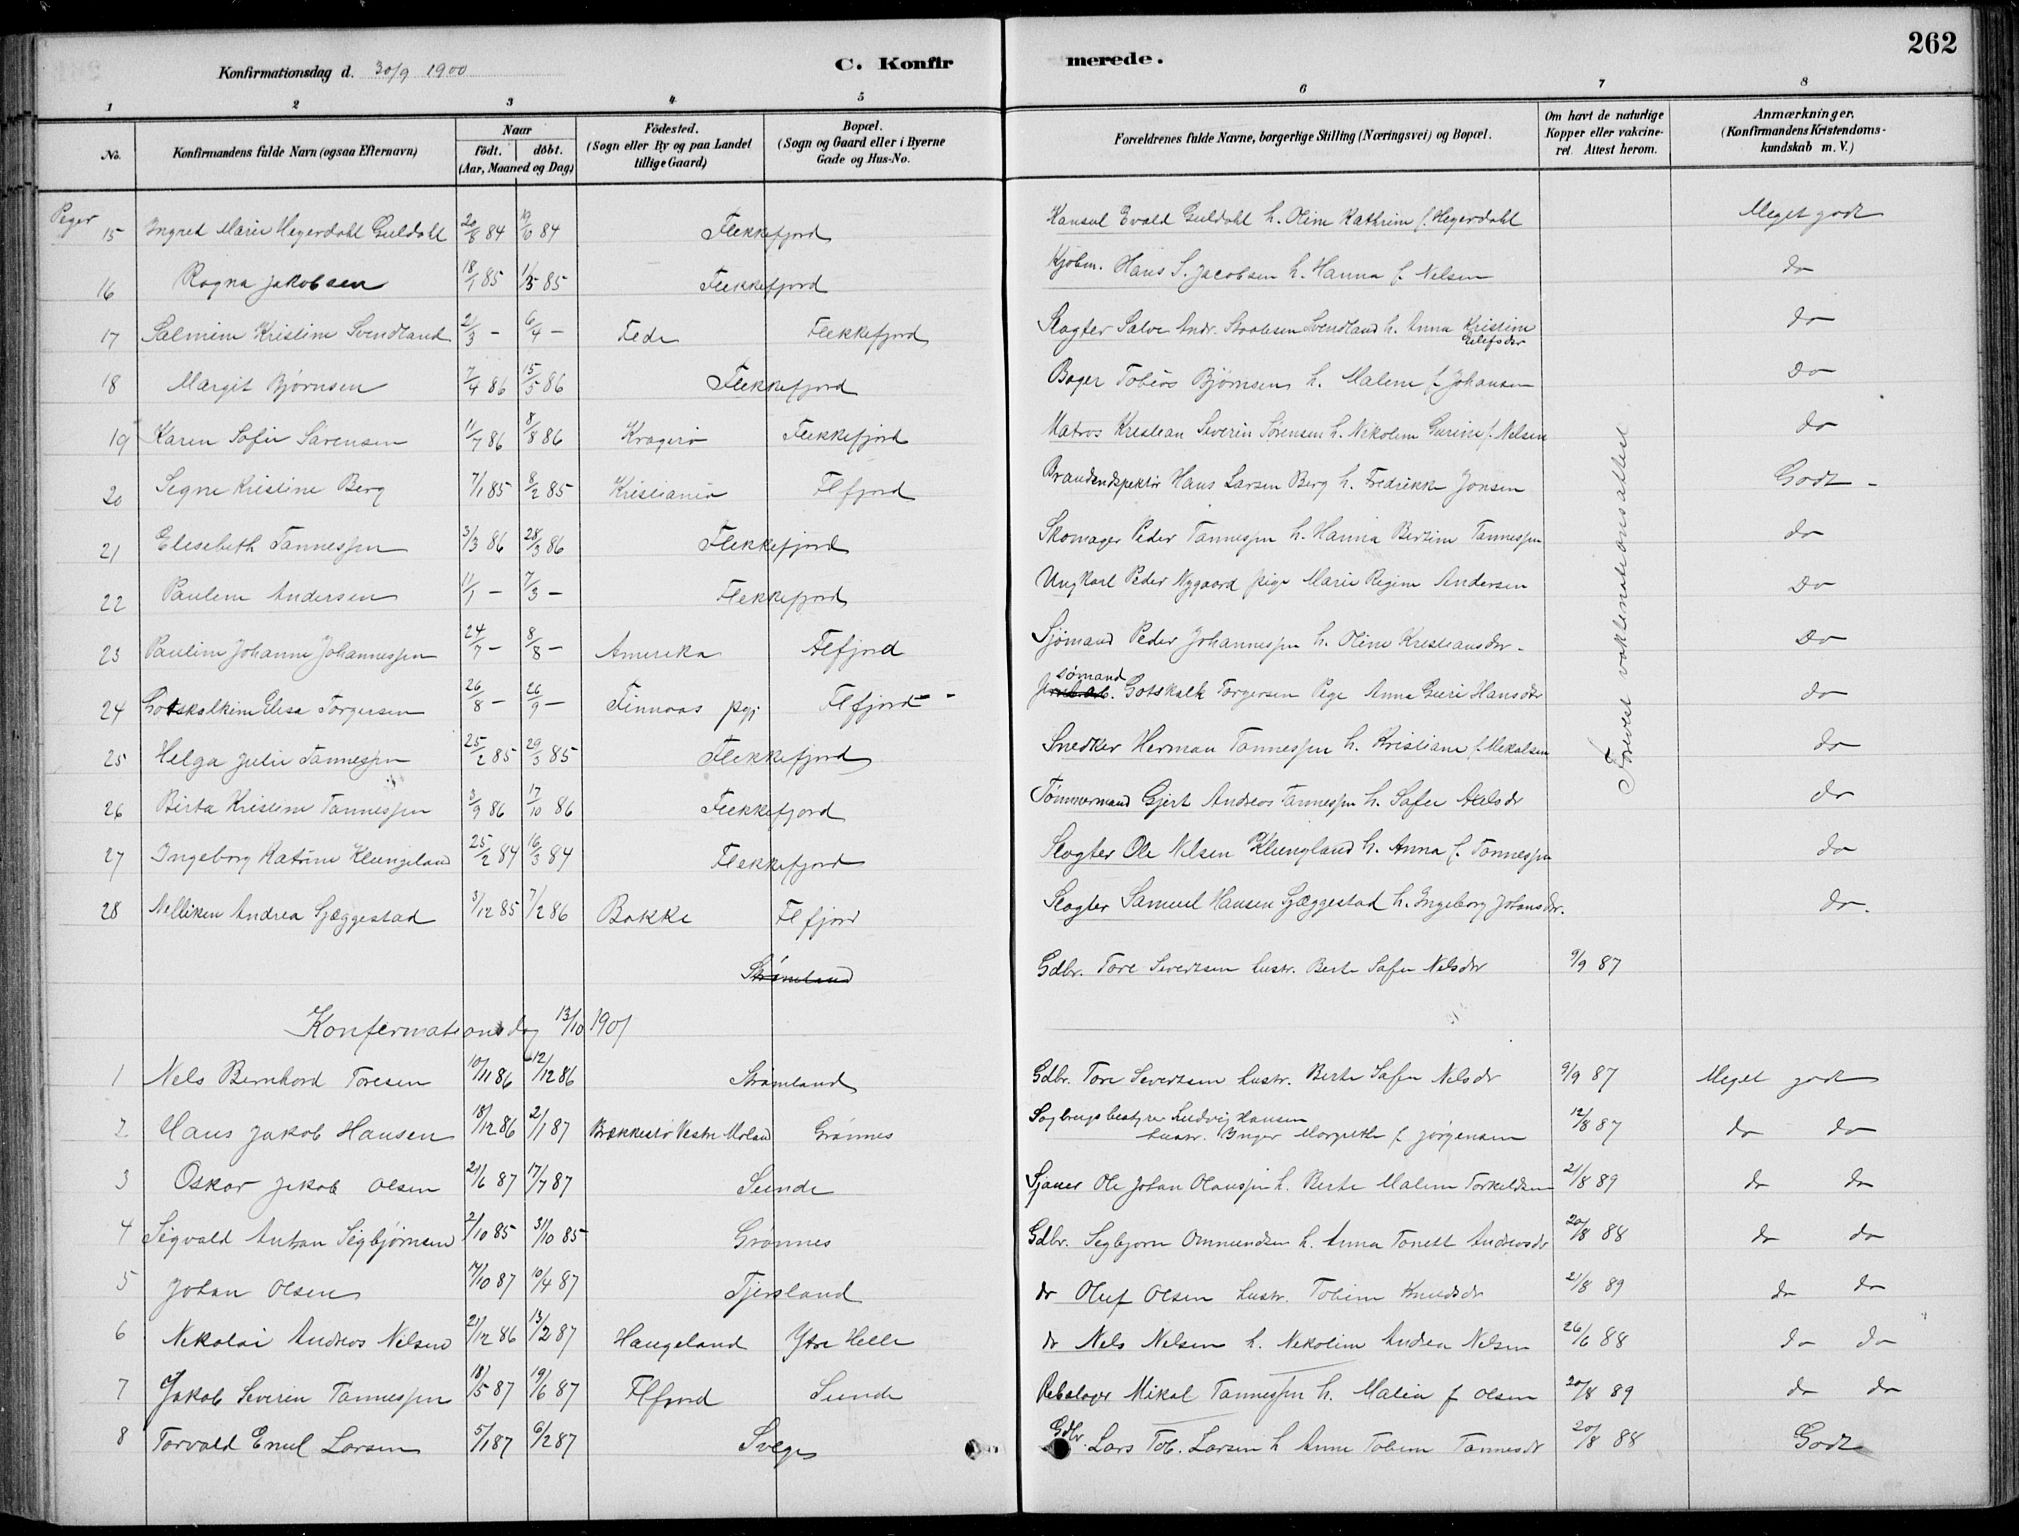 262
Konfirmationsdag d. 30/9 1900
C. Konfirmerede.
1 2 3 4 5 6 7 8
No.
Konfirmandens fulde Navn (ogsaa Efternavn)
Naar
födt. döbt.
(Aar, Maaned og Dag)
Födested.
(Sogn eller By og paa Landet
tillige Gaard)
Bopæl.
(Sogn og Gaard eller i Byerne
Gade og Hus-No.
Forældrenes fulde Navne, borgerlige Stilling (Næringsvei) og Bopæl.
Om havt de naturlige
Kopper eller vakcine-
ret. Attest herom.
Anmærkninger.
(Konfirmandens Kristendoms-
kundskab m. V.)
Piger
15 Ingred Marie Hegerdahl Guldahl 20/8 84 19/10 84 Flekkefjord Konsul Evald Guldahl h. Oline Kathrine f. Hegerdahl Meget godt
16 Ragna Jakobsen 18/1 85 1/5 85 Flekkefjord Kjøbm. Hans S. Jacobsen h. Hanna f. Nelsen do
17 Salmine Kristine Svendland 2/3 - 6/4 - Fede Flekkefjord Slagter Salve Andr. Svendland h. Anna Kristine Eilefsdr do
18 Margit Bjørnsen 7/4 86 15/5 86 Flekkefjord Bager Tobias Bjørnsen h. Malene f. Johansen do
19 Karen Sofie Sørensen 11/7 86 8/8 86 Kragerø Flekkefjord Matros Kristian Severin Sørensen h. Nikoline Gurine f. Nelsen do
20 Signe Kristine Berg 7/1 85 8/2 85 Kristiania Flfjord Hans Larsen Berg h. Fredrikke Jonsen Godt -
21 Elisebeth Tønnessen 3/3 86 28/3 86 Flekkefjord Skomager Peder Tønnessen h. Hanna Bertine Tønnessen do
22 Pauline Andersen 11/1 - 7/3 - Flekkefjord Ungkarl Peder Nygaard pige Marie Regine Andersen do
23 Pauline Johanne Johannessen 24/7 - 8/8 - Amerika Flfjord Sjømand Peder Johannessen h. Oline Kristiansdr. do
24 Gotskalkine Elisa Torgersen 26/8 - 26/9 - Finnaas pgj Flfjord sømand Gotskalk Torgersen Pige Anna Guri Hansdtr do
25 Helga Julie Tønnessen 25/2 85 29/3 85 Flekkefjord Snedker Herman Tønnessen h. Kristiane f. Mikalsen do
26 Birta Kristine Tønnessen 3/9 86 17/10 86 Flekkefjord Tømmermand Gjert Andreas Tønnessen h. Sofie do
27 Ingeborg Katrine Klungeland 25/2 84 16/3 84 Flekkefjord Slagter Ole Nilsen Klungland h. Anna f. Tønnessen do
28 Nelliken Andrea Sjæggestad 3/12 85 7/2 86 Bakke Flfjord Slagter Samuel Hansen Sjæggestad h. Ingeborg Johansdr. do.
Forevist vakkinationsattest
Strømland Gdbr. Tore Severtsen hustr. Berte Sofie Nelsdr 9/9 87
Konfermationsdag 13/10 1901
1 Nels Bernhard Toresen 10/11 86 12/12 86 Strømland Gdbr. Tore Severtsen hustr. Berte Sofie Nelsdr 9/9 87 Meget godt
2 Hans Jakob Hansen 18/12 86 2/1 87 Bækkestø Vestre Moland Grønnes Sagbrugsbestyrer Ludvig Hansen hustr. Inger Margrethe f. Jørgensen 12/8 87 do do
3 Oskar Jakob Olsen 21/6 87 17/7 87 Sunde Sjauer Ole Johan Olaussen h. Berte Malene Torkildsen 21/8 89 do do
4 Sigvald Anton Sigbjørnsen 2/10 85 31/10 85 Grønnes Gdbr. Segbjørn Ommundsen h. Anna Tonette Andreasdr 20/8 88 do do
5 Johan Olsen 7/10 87 10/4 87 Tjersland do Oluf Olsen hustr. Tobine Knudsdr 21/8 89 do do
6 Nekolai Andreas Nelsen 21/12 86 13/2 87 Haugeland Ytre Helle do Nels Nelsen h. Nekoline Andrea Nelsen 26/6 88 do do
7 Jakob Severin Tønnessen 18/5 87 19/6 87 Flfjord Sunde Rebslager Mikal Tønnessen h. Malia f. Olsen 20/8 89 do do
8 Torvald Emil Larsen 5/1 87 6/2 87 Svege Gdbr. Lars Tob. Larsen h Anne Tobine Tønnesdr 20/8 88 Godt